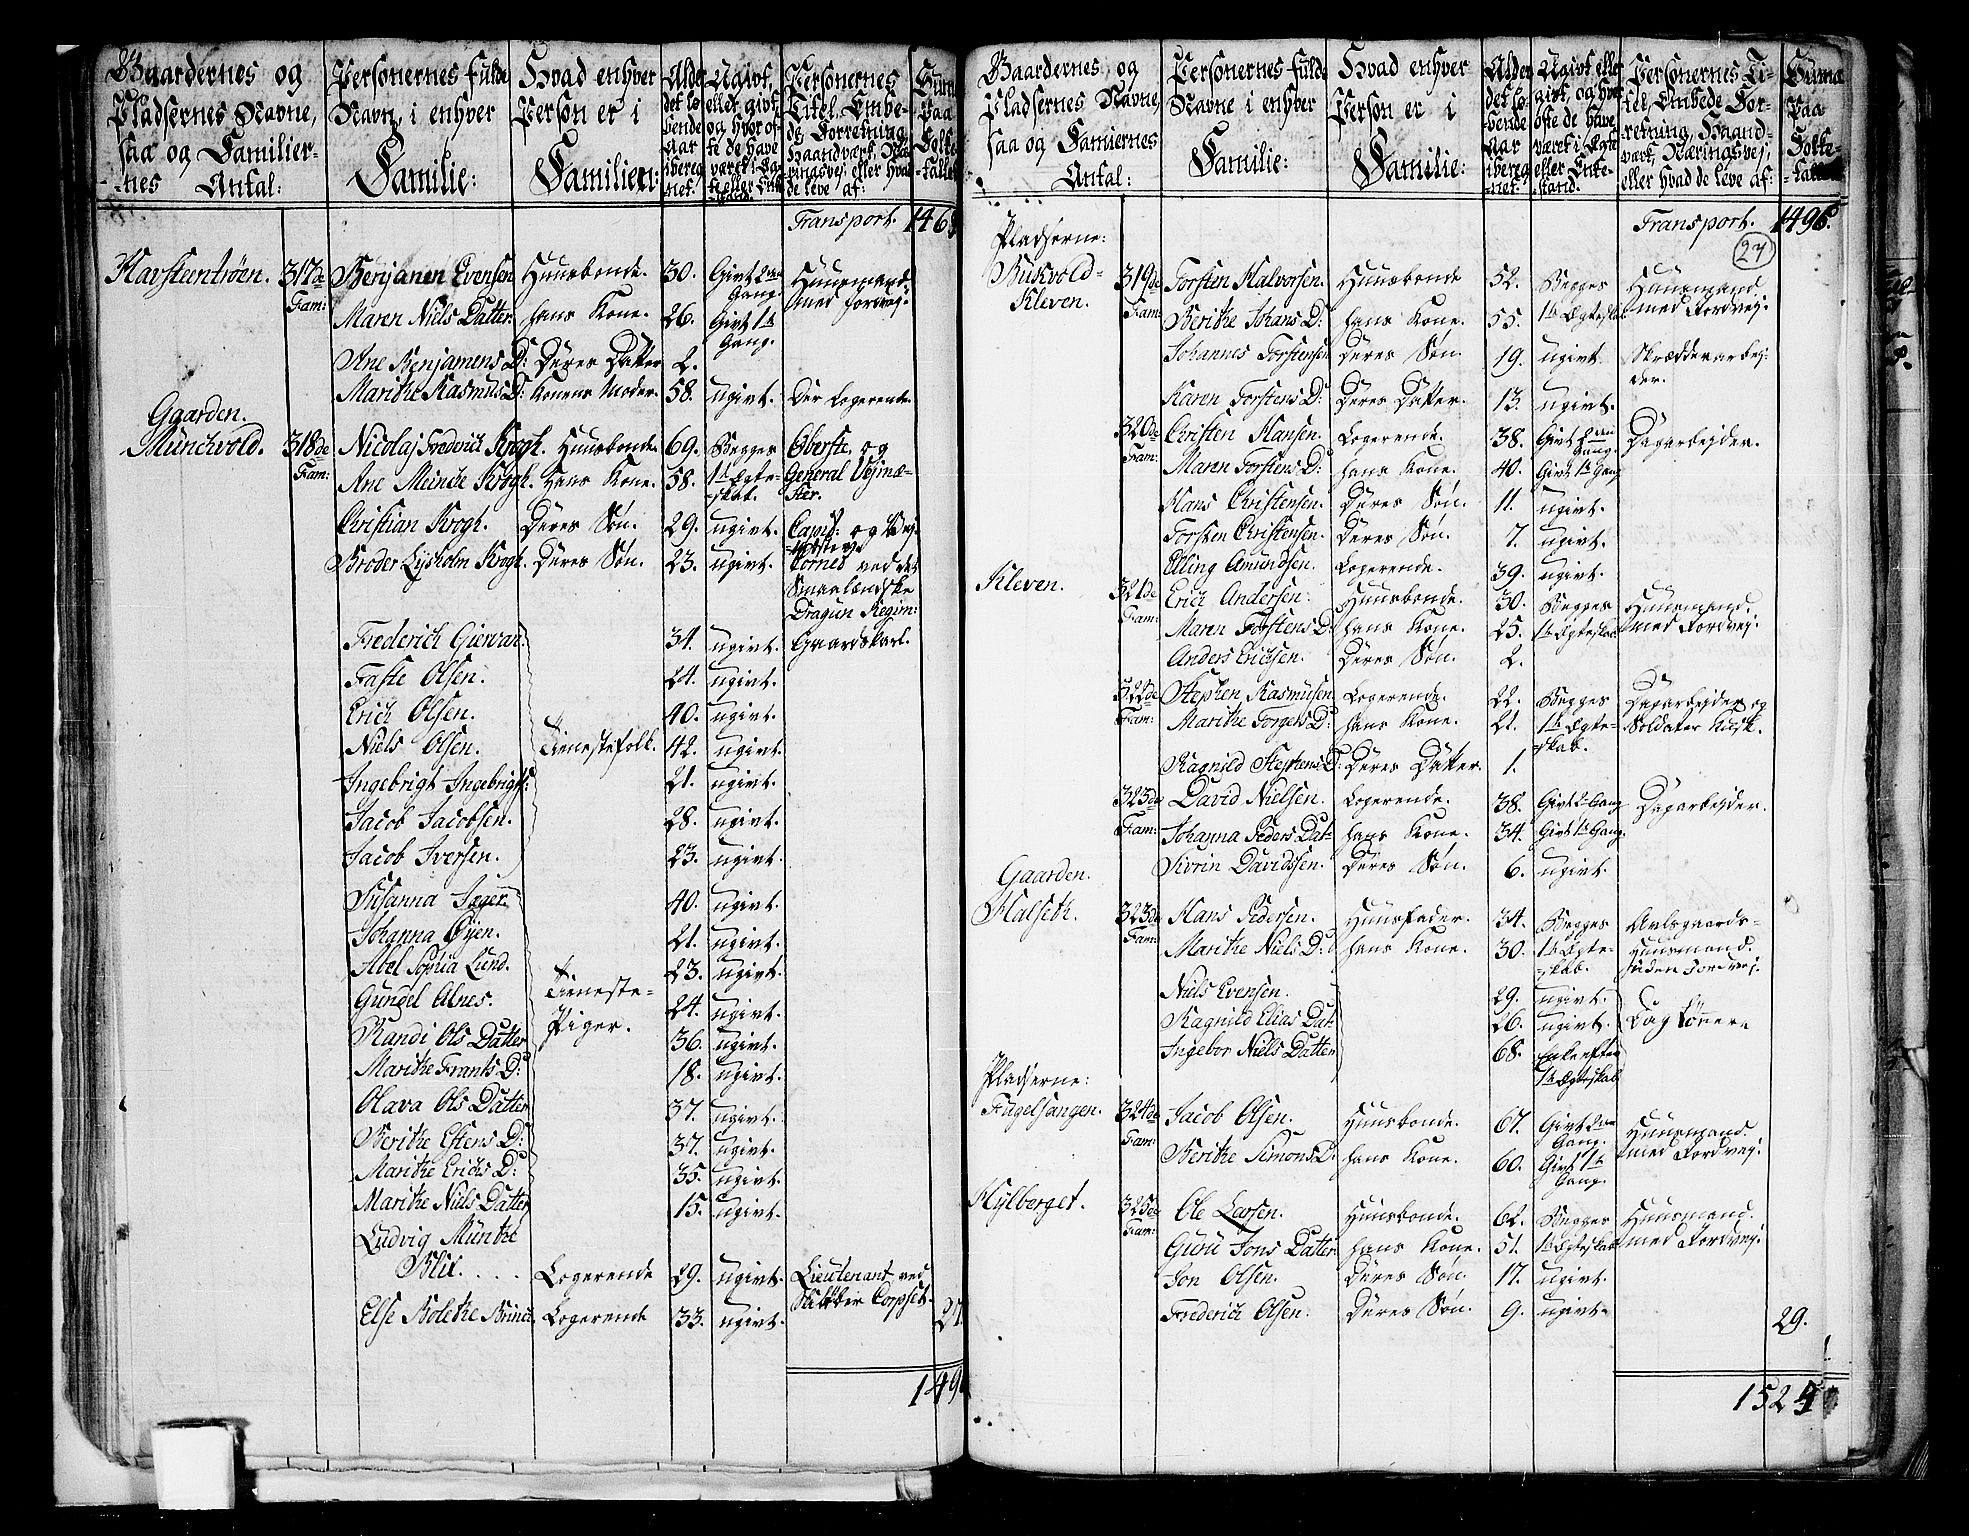 Gaardernes og Pladsernes Navne, saa og Familiernes Antal:
Personernes fulde Navn, i enhver Familie:
Hvad enhver Person er i Familien:
Alder det løbende Aar iberegnet.
Ugivt, eller givt, og hvor ofte de have været i Ægte eller Enkestand.
Personernes Titel, Embede, Forretning, Haandværk, Næringsvej, eller hvad de leve af:
Suma Paa Folke-Tallet
Transport. 146
Havsteentrøen. 317de Fam: Benjamin Evensen Huusbonde. 30. Givt 2den Gang. Huusmand med Jordvej.
Maren Niels Datter. hans Kone. 26. Givt 1te Gang.
Ane Benjamens D: Deres Datter 2.
Marithe Rasmus D: Konens Moder. 58. ugivt. Der Logerende.
Gaarden.
Munchvold. 318de Fam: Nicolaj Frederich Krogh. Huusbonde. 69. Begges 1te Ægteskab. Oberste og General Vejmæster.
Ane Meincke Krogh. Hans Kone. 58.
Christian Krogh. Deres Søn. 29. ugivt. Capit: og Vejmester
Broder Lysholm Krogh. Deres Søn. 23. ugivt. Cornet ved det Smaalendske Dragun Regim:
Frederich Giervan: 34. ugivt. Gaardskarl.
Faste Olsen. 24. ugivt.
Erich Olsen. 40. ugivt.
Niels Olsen. Tienestefolk. 42. ugivt.
Ingebrigt Ingebrigts: 21. ugivt.
Jacob Jacobsen. 28. ugivt.
Jacob Iversen. 23. ugivt.
Susanna Jæger 40. ugivt.
Johanna Øyen. 21. ugivt.
Abel Sophia Lund. 23. ugivt.
Gunnel Alnes. Tieneste-Piger. 24. ugivt.
Randi Ols Datter 36. ugivt.
Marithe Frants D: 18. ugivt.
Olava Ols Datter 37. ugivt.
Berithe Estens D: 37. ugivt.
Marithe Erichs D: 35. ugivt.
Marithe Niels Datter 15. ugivt.
Ludvig Munthe
Blix. . . . . Logerende 29. ugivt. Lieutenant ved Corpset.
Else Bolethe Logerende 33. ugivt. 27.
149
Gaardernes og Pladsernes Navne, saa og Famiernes Antal:
Personernes fulde Navne i enhver Familie:
Hvad enhver Person er i Familie:
Alder det løbende Aar iberegnet:
Ugivt eller givt, og hvor ofte de have været i Ægte eller Enkestand.
Personernes Titel, Embede Forretning, Haandværk, Næringsvej, eller hvad de leve af:
Suma Paa Folke-Tallet
Transport. 1496.
27
Pladserne:
Buskvold-Kleven. 319de Fam: Torsten Halvorsen. Huusbonde 52. Begges 1te Ægteskab Huusmand med Jordvej.
Berithe Johans D: hans Kone. 55.
Johannes Torstensen Deres Søn. 19. ugivt. Skrædderarbejder.
Karen Torstens D: Deres Datter. 13. ugivt.
320de Fam: Christen Hansen. Logerende. 38. Givt 2den Gang. Dagarbejder.
Maren Torstens D: hans Kone. 40. Givt 1te Gang
Hans Christensen. Deres Søn. 11. ugivt.
Torsten Christensen. Deres Søn. 7. ugivt.
Elling Amundsen. Logerende. 39. ugivt.
Kleven. 321de Fam: Erich Andersen. Huusbonde. 30. Begges 1te Ægteskab Huusmand med Jordvej.
Maren Torstens D: hans Kone. 25.
Anders Erichsen. Deres Søn. 2.
322de Fam: Stephen Rasmusen Logerende. 22. Begges 1te Ægteskab. Dagarbejder og Soldater
Marithe Torgers D: hans Kone. 21.
Ragnild Stephens D: Deres Datter. 1.
323de Fam: David Nielsen. Logerende. 38. Givt 2. Gang Dagarbejder.
Johanna Peders Dat: hans Kone. 34. Givt 1te Gang.
Sivrin Davidssen. Deres Søn. 6. ugivt.
Gaarden.
Halseth. 323de Fam: Hans Pedersen. Huusfader. 34. Begges 1te Ægteskab. Avlsgaards-Huusmand uden Jordvej.
Marithe Niels D: hans Kone. 30.
Niels Evensen. 29. ugivt. Dag Lønnere
Ragnild Elias Dat: 26. ugivt.
Ingebor Niels Datter 68. Enke efter 1te Ægteskab
Pladserne:
Fugelsangen. 324de Fam: Jacob Olsen. Huusbonde. 67. Givt 2den Gang. Huusmand med Jordvej.
Berithe Simons D: hans Kone. 60. Givt 1te Gang.
Hylberget. 325de Fam: Ole Larsen. Huusbonde. 62. Begges 1te Ægteskab Huusmand med Jordvej.
Guru Jons Datter hans Kone. 51.
Jon Olsen. Deres Søn. 17. ugivt.
Frederich Olsen. Deres Søn. 9. ugivt. 29.
1525